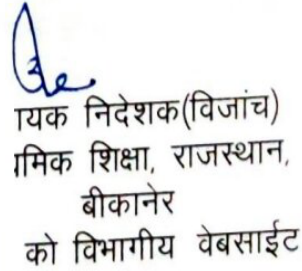 यक निदेशक(विजांच)
मिक शिक्षा, राजस्थान,
बीकानेर
को विभागीय वेबसाईट